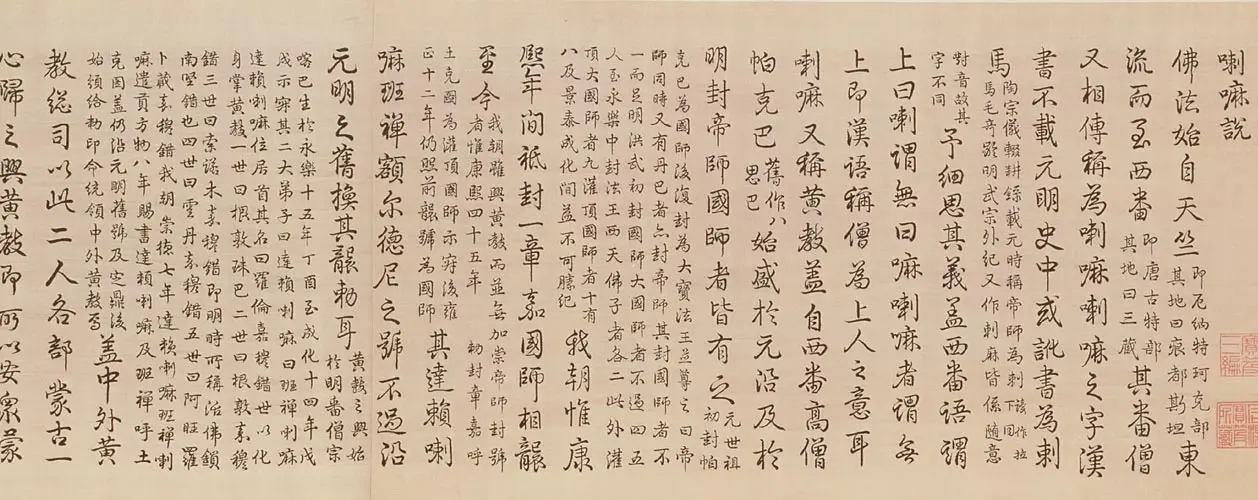 喇嘛說
佛法始自天竺即厄納特珂克部其地曰痕都斯坦東
流而至西番即唐古特部其地曰三藏其番僧
又相傳稱為喇嘛喇嘛之字漢
書不載元明史中或訛書為剌
馬陶宗儀輟畊錄載元時稱帝師為剌該作拉下同馬毛竒齡明武宗外紀又作剌麻皆係隨意
對音故其字不同予細思其義葢西番語謂
上曰喇謂無曰嘛喇嘛者謂無
上即漢語稱僧為上人之意耳
喇嘛又稱黃教葢自西番高僧
帕克巴舊作八思巴始盛於元沿及於
明封帝師國師者皆有之元世祖初封帕
克巴為國師後復封為大寶法王並尊之曰帝
師同時又有丹巴者亦封帝師其封國師者不
一而足明洪武初封國師大國師者不過四五
人至永樂中封法王西天佛子者各二此外灌
頂大國師者九灌頂國師者十有
八及景泰成化間益不可勝紀我朝惟康
熙年間祗封一章嘉國師相襲
至今我朝雖興黃教而並無加崇帝師封號者惟康熙四十五年勅封章嘉呼
土克圖為灌頂國師示寂後雍
正十二年仍照前襲號為國師其達賴喇
嘛班禪額尔德尼之號不過沿
元明之舊換其襲勅耳黃教之興始於明番僧宗
喀巴生於永樂十五年丁酉至成化十四年戊
戌示寂其二大弟子曰達賴喇嘛曰班禪喇嘛
達賴喇嘛位居首其名曰羅倫嘉穆錯世以化
身掌黃教一世曰根敦珠巴二世曰根敦嘉穆
錯三世曰索諾木嘉穆錯即明時所稱活佛鎖
南堅錯也四世曰雲丹嘉穆錯五世曰阿旺羅
卜藏嘉穆錯我朝崇德七年達賴喇嘛班禪喇
嘛遣貢方物八年賜書達賴喇嘛及班禪呼土
克圖葢仍沿元明舊號及定鼎後
始頒給勅印命統領中外黃教焉葢中外黃
教總司以此二人各部蒙古一
心歸之興黃教即所以安衆蒙